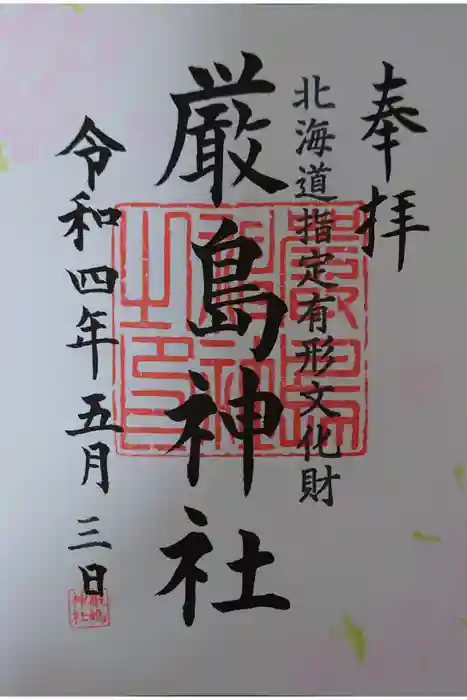 奉拝
北海道指定有形文化財
厳島神社
令和四年五月三日